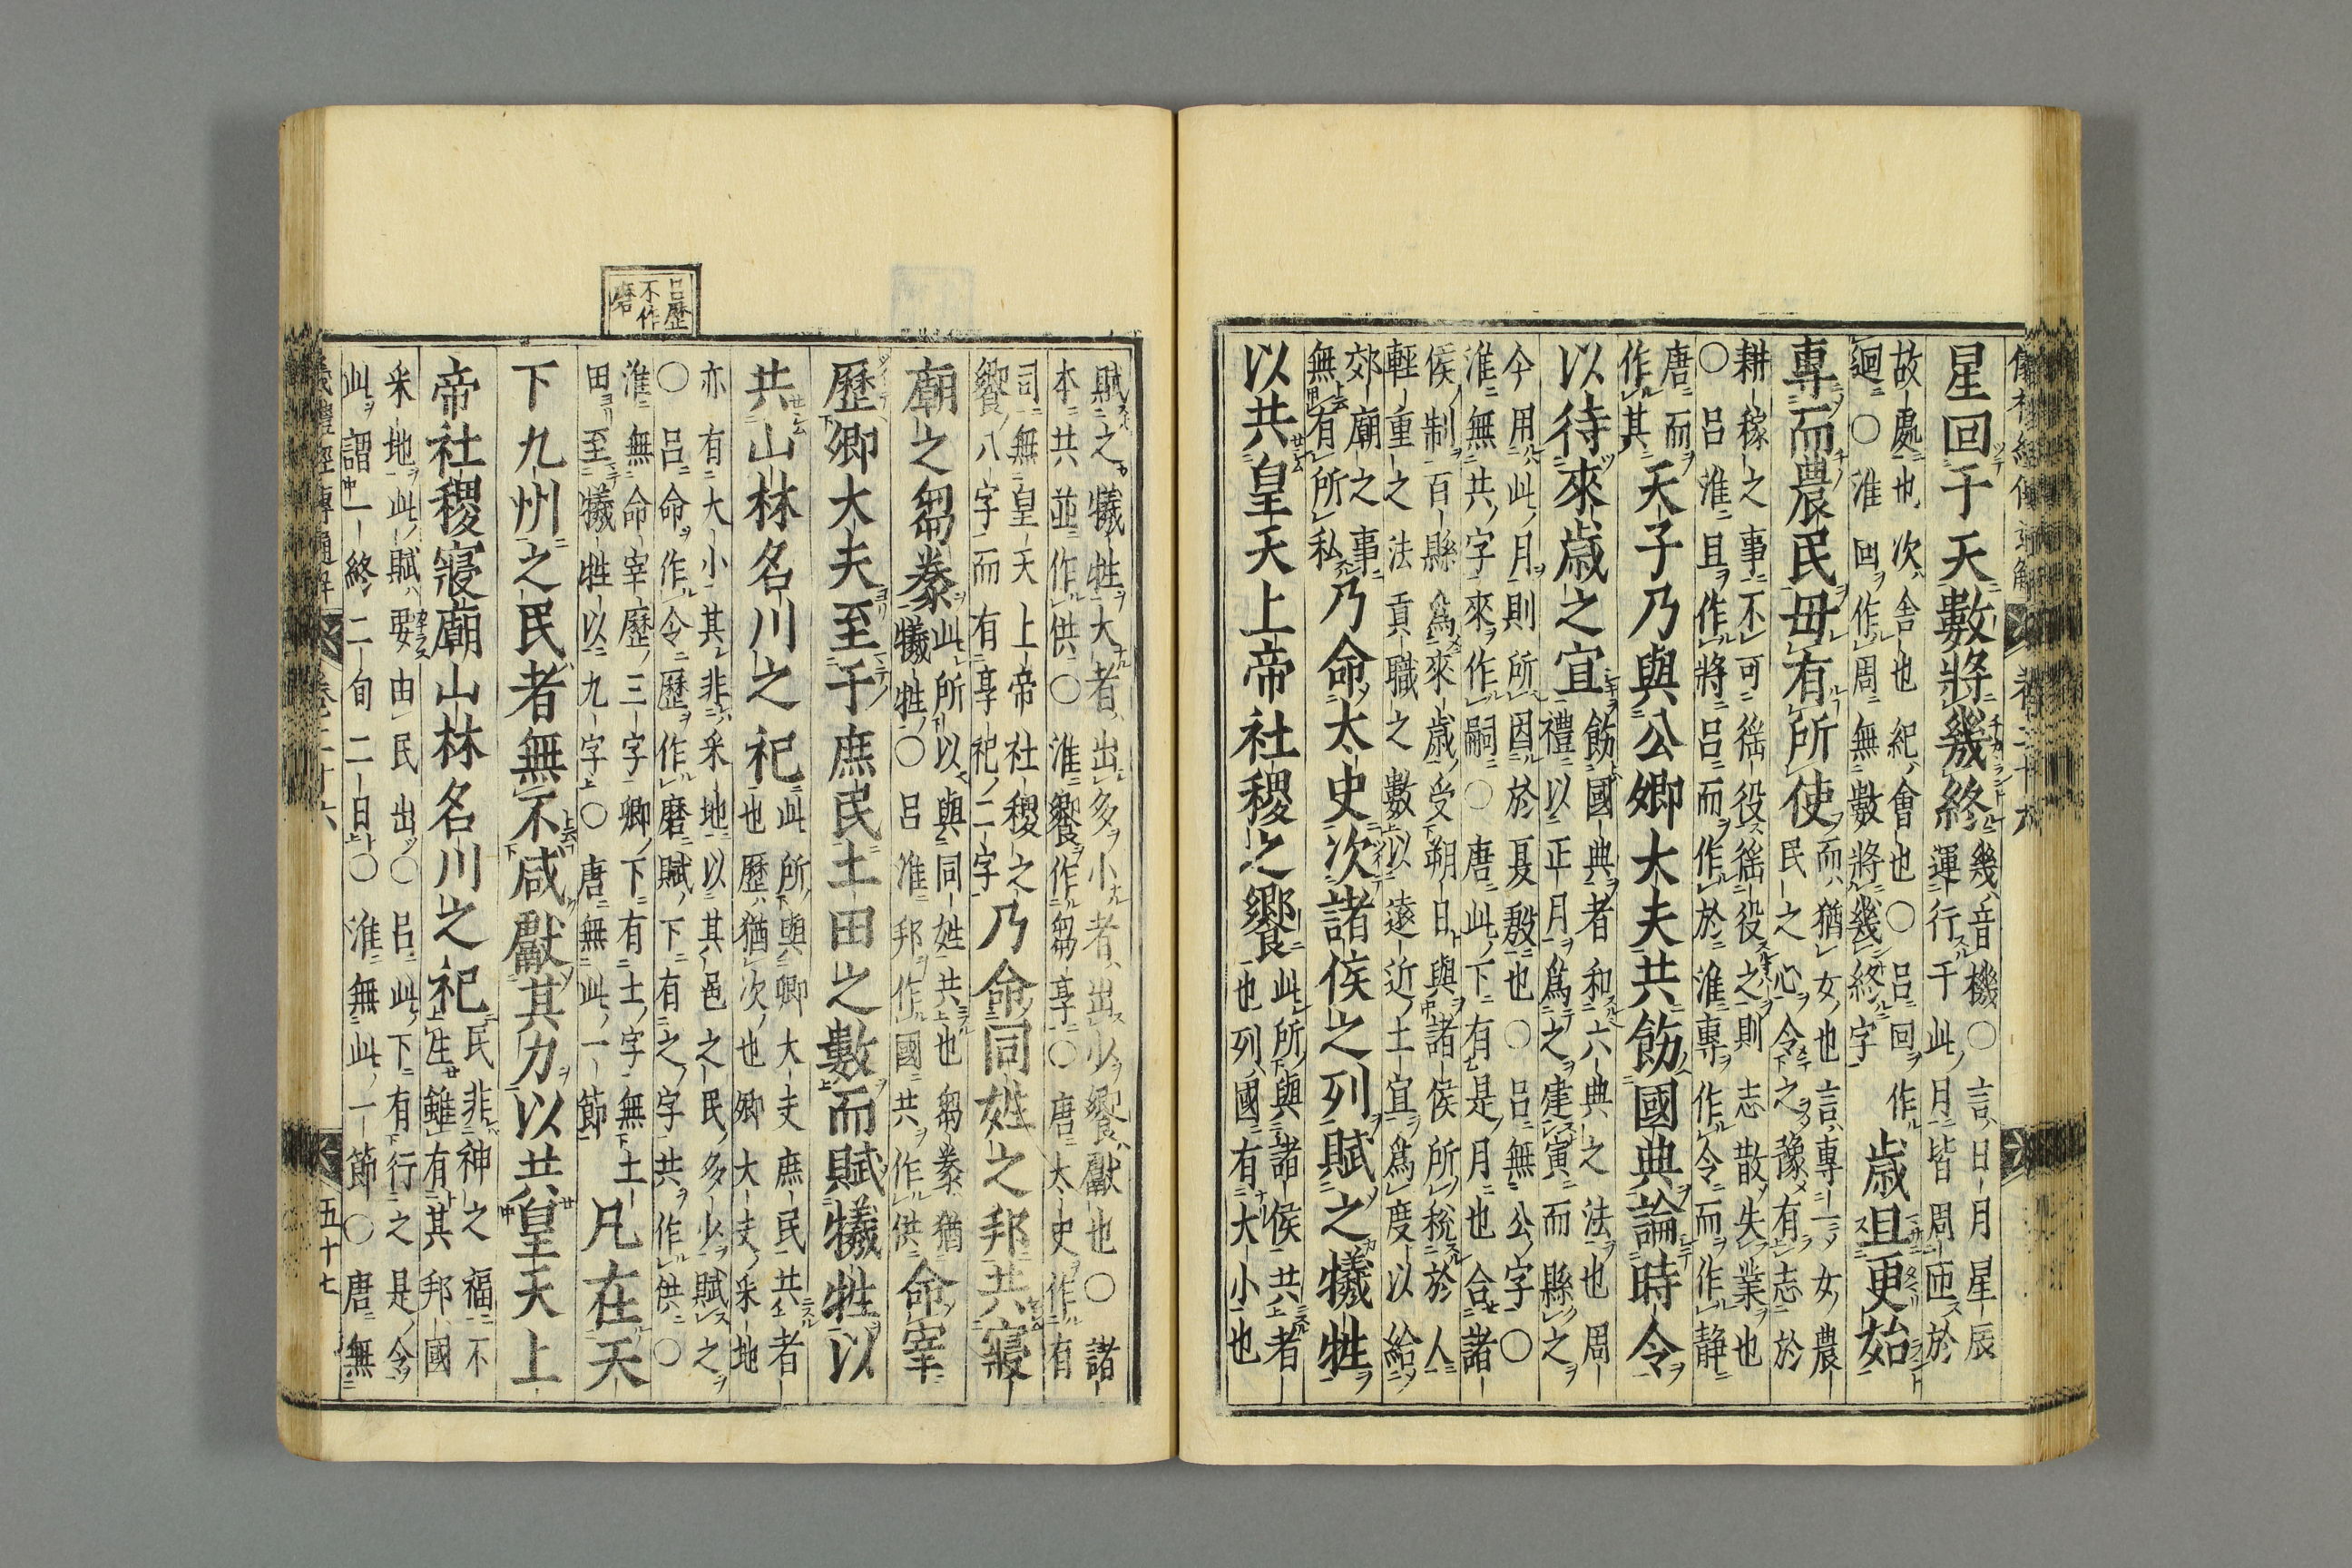 儀禮經傳通解
卷二十六
星回于天數將幾終
幾音機○言日月星辰
運行于此月皆周匝於
故處也次舍也紀會也○呂回作
迴○淮回作周無數將幾終字
歲且更始
專而農民毋有所使
而猶女也言專一女農
民之心令之豫有志於
耕稼之事不可徭役徭役之則志散失業也
○呂淮且作將呂而作於淮專作令而作静
唐而
作其
天子乃與公卿大夫共飭國典論時令
以待來歲之宜
飭國典者和六典之法也周
禮以正月爲之建寅而縣之
今用此月則所因於夏殷也○呂無公字○
淮無共字來作嗣○唐此下有是月也合諸
侯制百縣爲來歲受朔日與諸侯所稅於人
輕重之法貢職之數以遠近土宜爲度以給
郊廟之事
無有所私
乃命太史次諸侯之列賦之犧牲
以共皇天上帝社稷之饗
此所與諸侯共者
也列國有大小也
賦之犧牲大者出多小者出少饗獻也○諸
本共並作供○淮饗作芻享○唐太史作有
司無皇天上帝社稷之
饗八字而有享祀二字
乃命同姓之邦共寢
廟之芻豢
此所以與同姓共也芻豢猶
犧牲○呂淮邦作國共作供
命宰
歷卿大夫至于庶民土田之數而賦犧牲以
共山林名川之祀
此所與卿大夫庶民共者
也歷猶次也卿大夫采地
亦有大小其非采地以其邑之民多少賦之
○呂命作令歷作磨賦下有之字共作供○
淮無命宰歷三字卿下有士字無土
田至犧牲以九字○唐無此一節
凡在天
下九州之民者無不咸獻其力以共皇天上
帝社稷寢廟山林名川之祀
民非神之福不
生雖有其邦國
采地此賦要由民出○呂此下有行之是令
此謂一終二旬二日○淮無此一節○唐無
呂歷
不作
磨
儀禮經傳通解
卷二十六
五十七